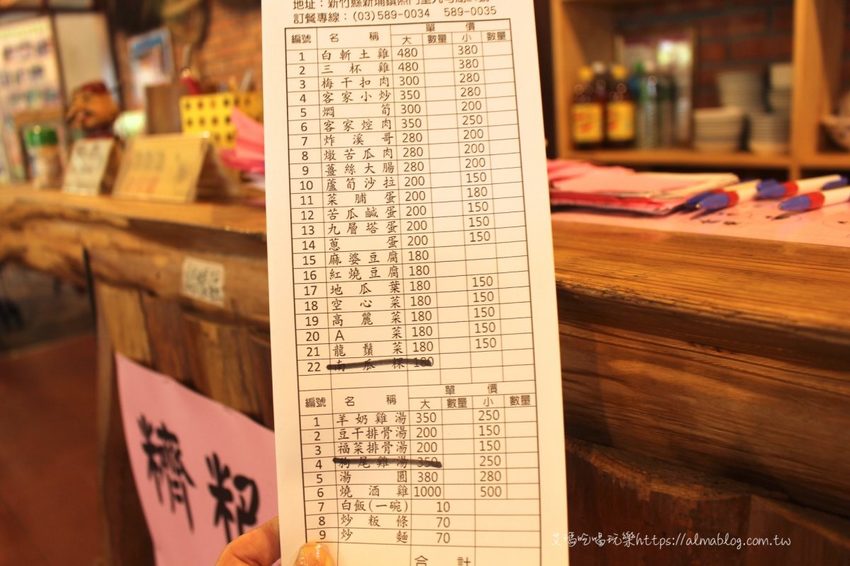 地址：新竹縣新埔鎮
訂餐專線：(03)589-0034 589-0035
編號 名稱 單價
大 數量 小 數量
1 白斬土雞 480 380
2 三杯雞 480 380
3 梅干扣肉 300 280
4 客家小炒 350 280
5 燜筍 300 200
6 客家焢肉 350 250
7 炸溪哥 280 200
8 燉苦瓜肉 280 200
9 薑絲大腸 280 200
10 蘆筍沙拉 200 150
11 菜脯蛋 200 180
12 苦瓜鹹蛋 200 150
13 九層塔蛋 200 150
14 蔥蛋 200 150
15 麻婆豆腐 180
16 紅燒豆腐 180
17 地瓜葉 180 150
18 空心菜 180 150
19 高麗菜 180 150
20 A菜 180 150
21 龍鬚菜 180 150
22 南瓜粿 180
編號 名稱 單價
大 數量 小 數量
1 羊奶雞湯 350 250
2 豆干排骨湯 200 150
3 福菜排骨湯 200 150
4 狗尾雞湯 350 250
5 湯圓 380 280
6 燒酒雞 1000 500
7 白飯(一碗) 10
8 炒粄條 70
9 炒麵 70
合計
糬粑
艾瑪吃喝玩樂https://almablog.com.tw